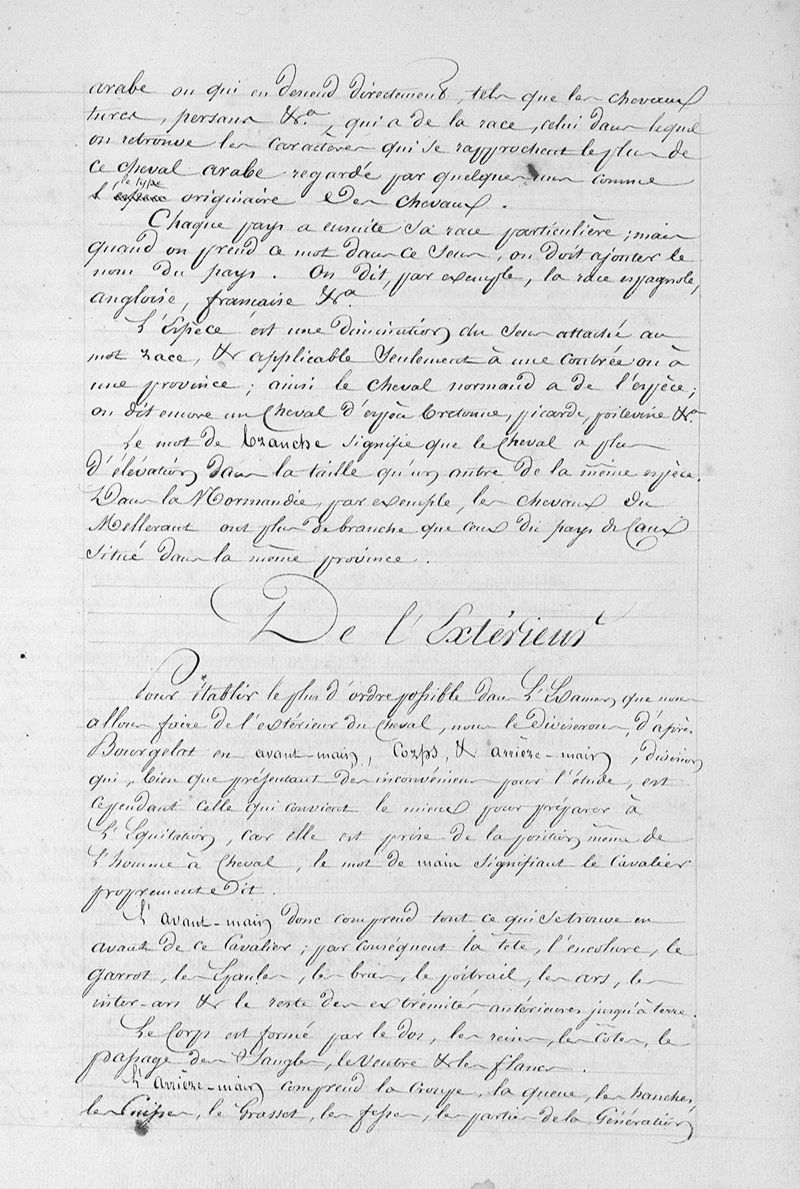 arabe ou qui en descend directement, tels que les chevaux
turcs, persans &a., qui a de la race, celui dans lequel
on retrouve les caractères qui se rapprochent le plus de
ce cheval arabe regardé par quelques uns comme
le type
l'espèce originaire des chevaux.
Chaque pays a ensuite sa race particulière; mais
quand on prend ce mot dans ce sens, on doit ajouter le
nom du pays. On dit, par exemple, la race espagnole,
angloise, française &a
L'Espèce est une diminution du sens attaché au
mot race, & applicable seulement à une contrée ou à
une province; ainsi le cheval normand a de l'espèce;
on dit encore un Cheval d'espèce bretonne, picarde, poitevine &a.
Le mot de branche signifie que le Cheval a plus
d'élévation dans la taille qu'un autre de la même espèce.
Dans la Normandie, par exemple, les chevaux du
Mellerant ont plus de branche que ceux du pays de Caux
situé dans la même province.
De l'Extérieur
Pour établir le plus d'ordre possible dans l'Examen que nous
allons faire de l'extérieur du Cheval, nous le diviserons, d'après
Bourgelat en avant-main, Corps, & arrière-main, division
qui, bien que présentant des inconvéniens pour l'étude, est
cependant celle qui convient le mieux pour préparer à
l'Equitation, car elle est prise de la position même de
l'homme à Cheval, le mot de main signifiant le Cavalier
proprement dit.
L'avant-main donc comprend tout ce qui se trouve en
avant de ce Cavalier; par conséquent la tête, l'encolure, le
garrot, les Epaules, les bras, le poitrail, les ars, les
inter-ars & le reste des extrémités antérieures jusqu'à terre.
Le Corps est formé par le dos, les reins, les côtes, le
passage des Sangles, le Ventre & les flancs.
L'arrière-main comprend la Croupe, la queue, les hanches,
les Cuisses, le Grasset, les fesses, les parties de la Génération